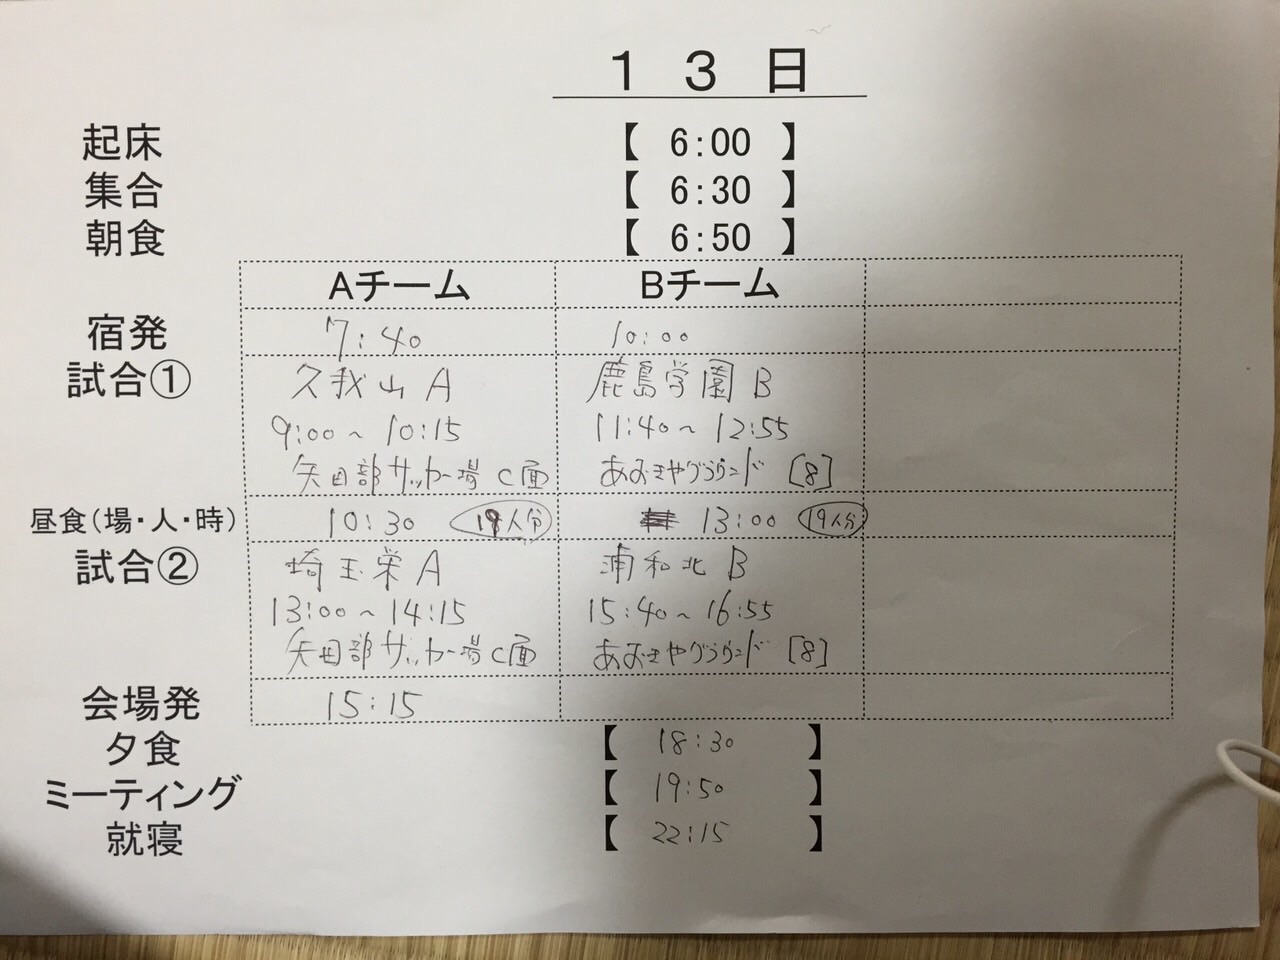 13日
起床 【 6:00 】
集合 【 6:30 】
朝食 【 6:50 】
Aチーム Bチーム
宿発 7:40 10:00
試合① 久我山 A 鹿島学園 B
9:00~10:15 11:40~12:55
矢田部サッカー場 C面 あおきやグラウンド [8]
昼食(場・人・時) 10:30 19人分 13:00 19人分
試合② 埼玉栄 A 浦和北 B
13:00~14:15 15:40~16:55
矢田部サッカー場 C面 あおきやグラウンド [8]
会場発 15:15
夕食 【 18:30 】
ミーティング 【 19:50 】
就寝 【 22:15 】